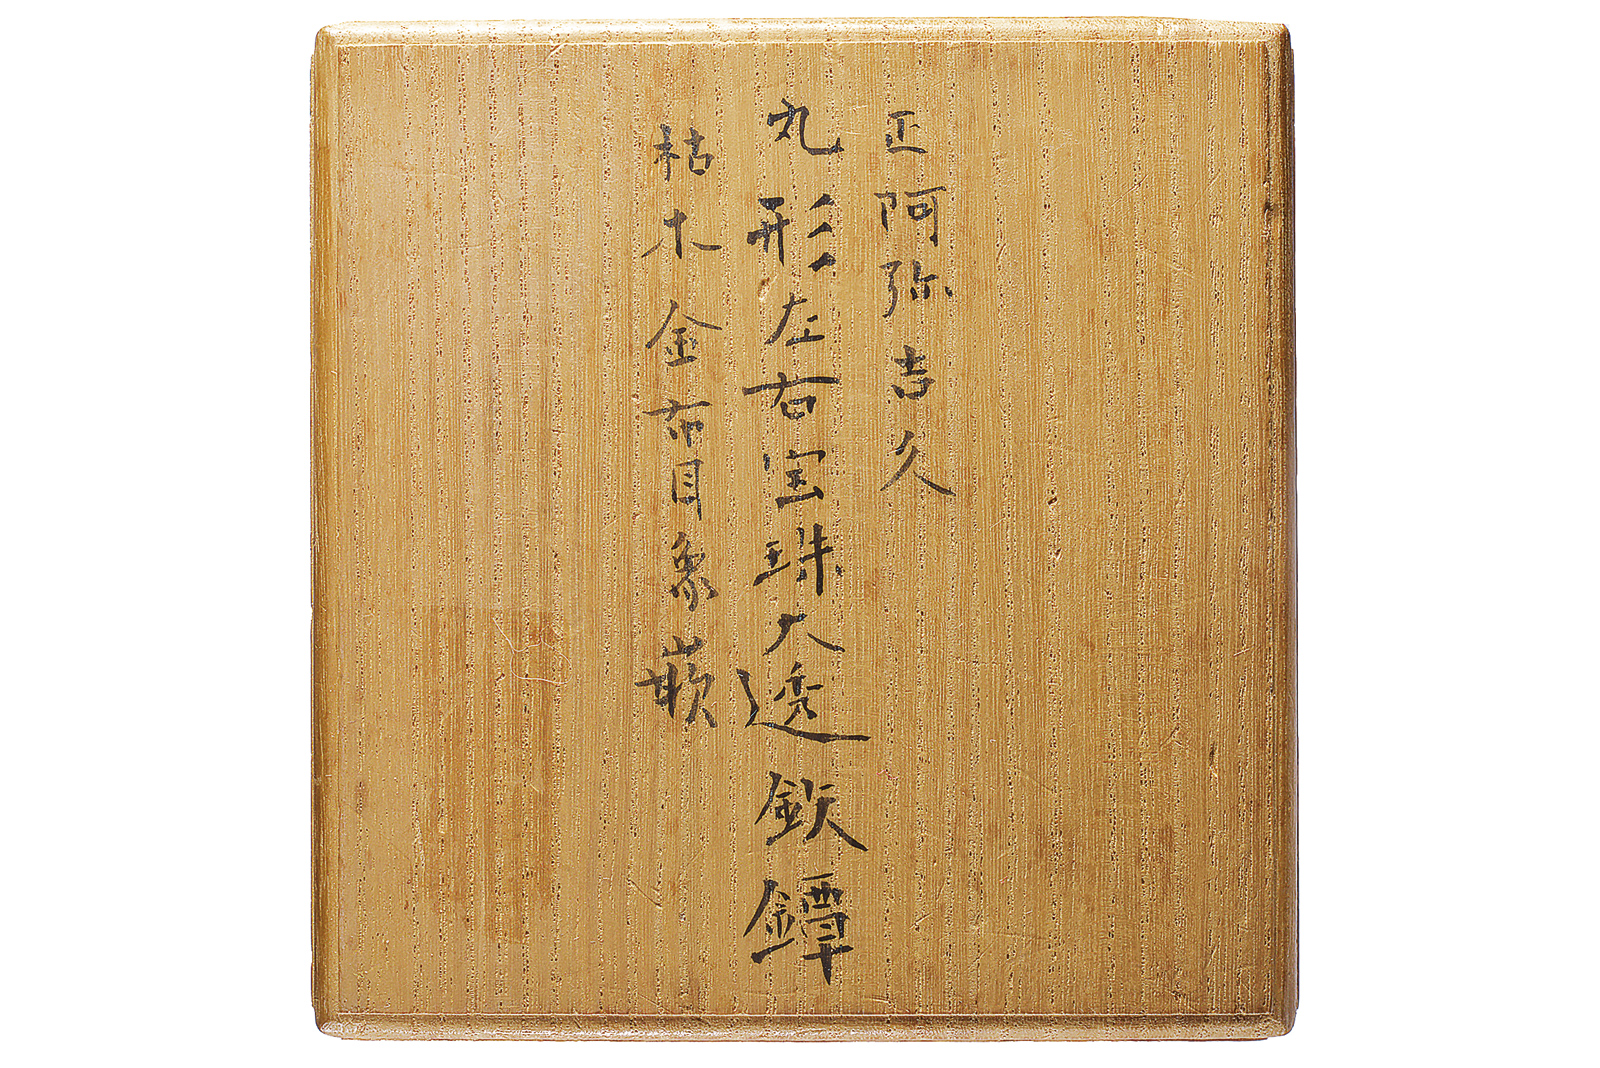 正阿弥吉久
丸形左右宝珠大透鉄鐔
枯木金布目象嵌